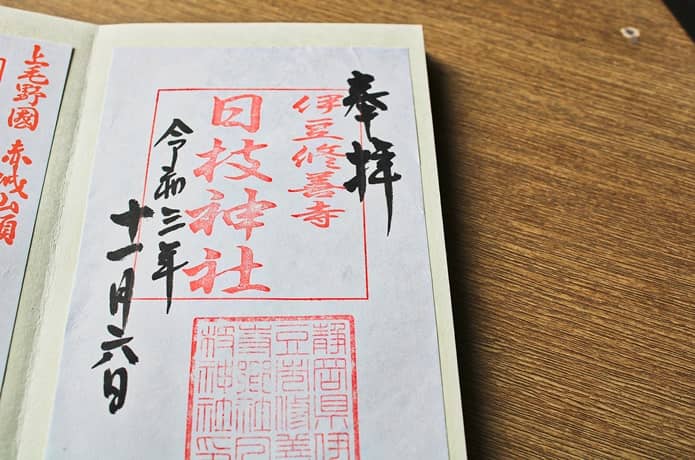 奉拝
伊豆修善寺
日枝神社
令和三年
十一月六日
静岡県伊
豆市修善
寺鎮座日
枝神社印
上毛野國 赤城山頂